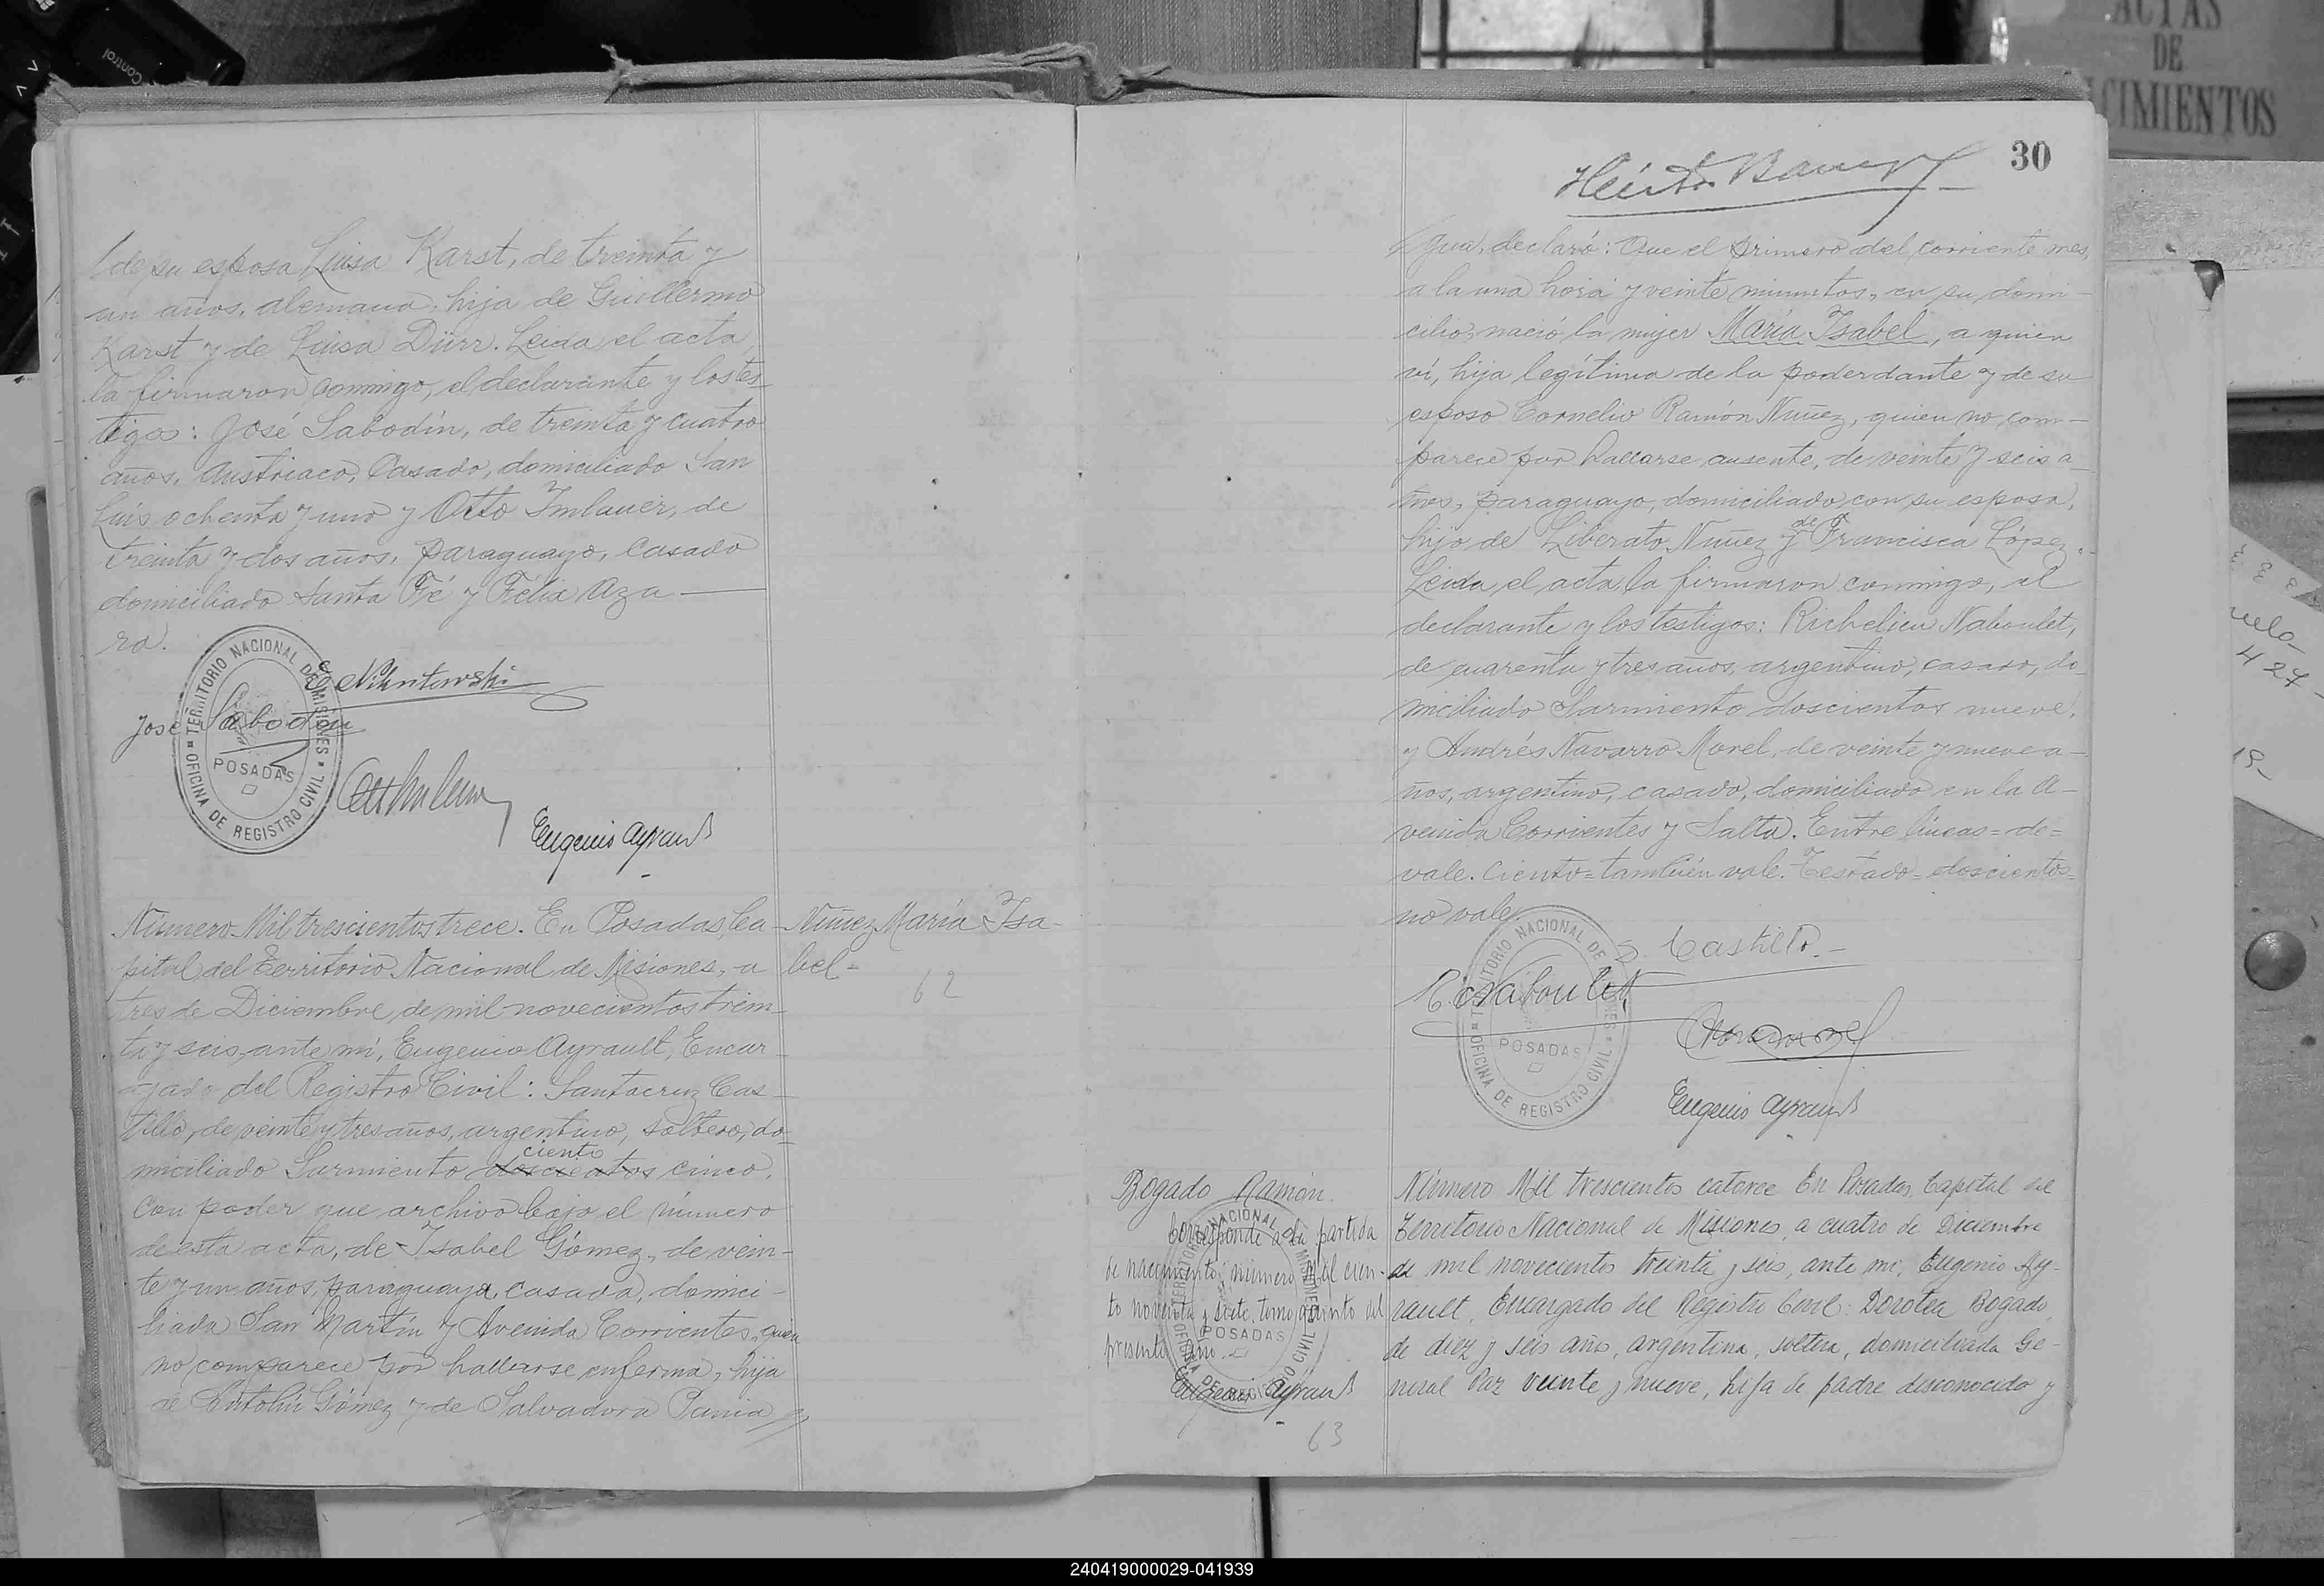 de su esposa Luisa Karst, de treinta y
un años, alemana, hija de Guillermo
Karst y de Luisa Dürr. Leida el acta
la firmaron conmigo, el declarante y los tes-
tigos: José Sabodín, de treinta y cuatro
años, Austriaco, Casado, domiciliado San
Luis ochenta y uno y Otto Imlauer, de
treinta y dos años, paraguayo, Casado
domiciliado Santa Fé y Félix Aza —
ra.
TERRITORIO NACIONAL DE MISIONES
OFICINA DE REGISTRO CIVIL
POSADAS
José Sabodin
Eugenio Ayrault
Número Mil trescientos trece. En Posadas, Ca-
pital del Territorio Nacional de Misiones, a
tres de Diciembre de mil novecientos trein-
ta y seis, ante mí, Eugenio Ayrault, Encar-
gado del Registro Civil: Santacruz Cas-
tillo, de veinte y tres años, argentino, soltero, do-
ciento
miciliado Sarmiento doscientos cinco.
Con poder que archivo bajo el número
de esta acta, de Isabel Gómez, de vein-
te y un años, paraguaya, casada, domici-
liada San Martín y Avenida Corrientes, quien
no comparece por hallarse enferma, hija
de Antolín Gómez y de Salvadora Pania
Núñez María Isa-
bel =
62
30
gua, declaró: Que el primero del corriente mes,
a la una hora y veinte minutos, en su domi-
cilio, nació la mujer María Isabel, a quien
ví, hija legítima de la poderdante y de su
esposo Cornelio Ramón Nuñez, quien no com-
parece por hallarse ausente, de veinte y seis a-
ños, paraguayo, domiciliado con su esposa,
de
hijo de Liberato Nuñez y Francisca López.
Leida el acta, la firmaron conmigo, el
declarante y los testigos: Richelieu Naboulet,
de cuarenta y tres años, argentino, casado, do-
miciliado Sarmiento doscientos nueve,
y Andrés Navarro Morel, de veinte y nueve a-
ños, argentino, casado, domiciliado en la A-
venida Corrientes y Salta. Entre líneas = de =
vale. Ciento = también vale. Testado = doscientos =
no vale.
TERRITORIO NACIONAL DE MISIONES
OFICINA DE REGISTRO CIVIL
POSADAS
S. Castillo.
R. Naboulet
Eugenio Ayrault
Bogado Ramón.
Corresponde a la partida
de nacimiento, número Mil cien-
to noventa y siete, tomo quinto del
presente año.
TERRITORIO NACIONAL DE MISIONES
OFICINA DE REGISTRO CIVIL
POSADAS
Eugenio Ayrault
63
Número Mil trescientos catorce En Posadas, Capital del
Territorio Nacional de Misiones, a cuatro de Diciembre
de mil novecientos treinta y seis, ante mi, Eugenio Ay-
rault, Encargado del Registro Civil: Dorotea Bogado,
de diez y seis años, argentina, soltera, domiciliada Ge-
neral Paz veinte y nueve, hija de padre desconocido y
ACTAS
DE
CIMIENTOS
Control
424
240419000029-041939